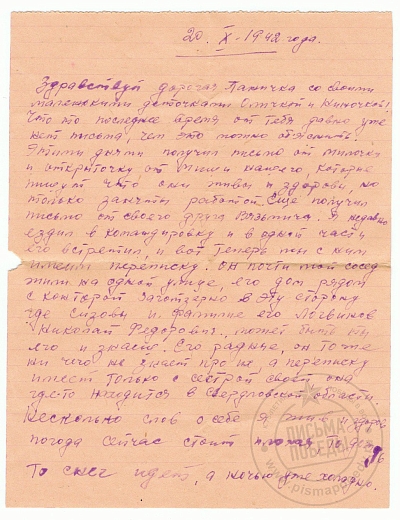 20. X-1942 года.
Здравствуй дорогая со своими
маленькими деточками и Ниночкой!
Что то последнее время от тебя давно уже
нет письма, чем это можно объяснить.
Этими днями получил письмо от Милочки
и открыточку от Миши нашего, которые
пишут что они живы и здоровы, но
только заняты работой. Еще получил
письмо от своего друга Я недавно
ездил в командировку и в одной части
его встретил, и вот теперь мы с ним
имеем переписку. Он почти мой сосед
жили на одной улице, его дом рядом
с конторой Заготзерно в эту сторону
где Сизовы и фамилие его Логвинов
Николай Федорович. может быть ты
его и знаешь. Его родные, он тоже
ни чего не знает про их а переписку
имеет только с сестрой своей она
где-то находится в Свердловской области.
Несколько слов о себе я жив и здоров
погода сейчас стоит плохая, то дождь
То снег идет, а ночью уже холодно.
ПИСЬМА
ПОБЕДЫ
www.pismapobedy